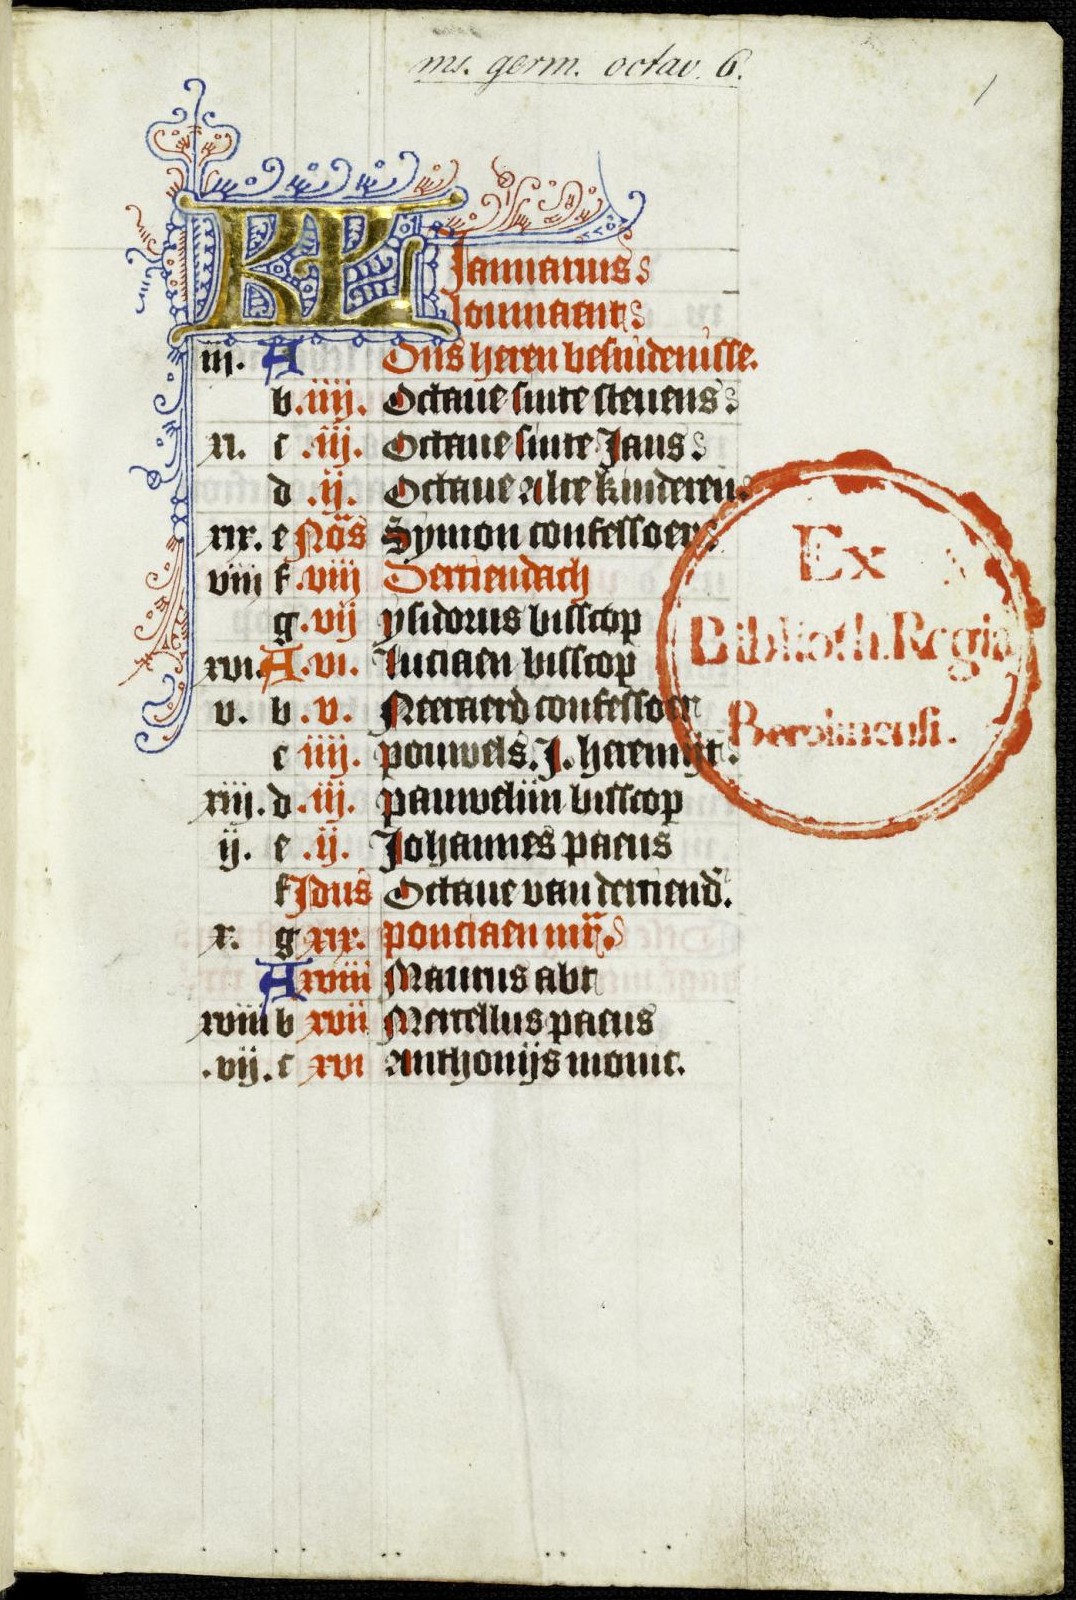 ms. germ. octav. 6.
1
KL Januarius
loumaent
iii. A Ons heren besnidenisse.
b .iiij. Octaue sinte steuens
xi. c .iij. Octaue sinte Jans
d .ij. Octaue alre kinderen.
xix. e Nōs Symon confessoer
viii f .viij Dertiendach
g .vij ysidorus bisscop
xvi. A .vi. luciaen bisscop
v. b .v. confessoer
c iiij. pouwels .J. heremijt.
xiij. d .iij. pauwelijn bisscop
ij. e .ij. Johannes paeus
f Jdus Octaue van dertiend.
x. g xix. ponciaen mr̄.
A xviii Maurus abt
xviii b xvii Mercellus paeus
.vij. c xvi anthonijs monic.
Ex
Biblioth. Regia
Berolinensi.